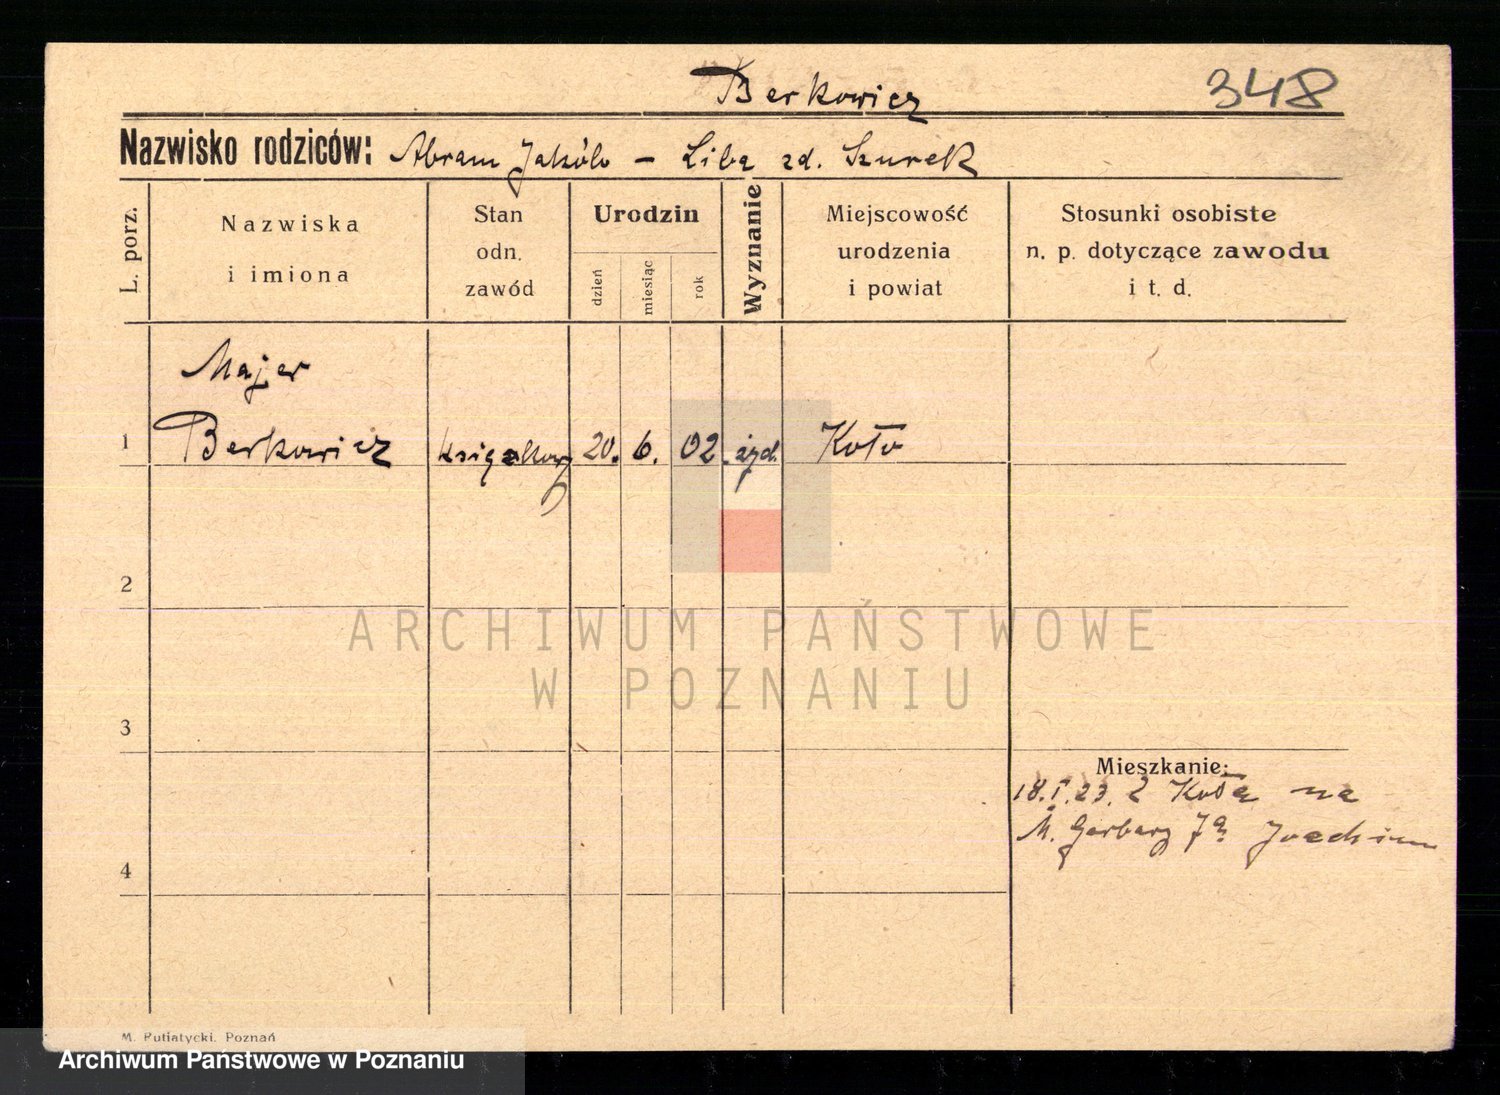 Berkowicz 348
Nazwisko rodziców: Abram Jakób - Liba zd. Szurek
L. porz.
Nazwiska
i imiona
Stan
odn.
zawód
Urodzin
dzień
miesiąc
rok
Wyznanie
Miejscowość
urodzenia
i powiat
Stosunki osobiste
n. p. dotyczące zawodu
i t. d.
Majer
1 Berkowicz 20. 6. 02 żyd. Koło
2
3
4
Mieszkanie:
18.I.23. z Koła na
M. Garbary 7a Joachim
ARCHIWUM PAŃSTWOWE
W POZNANIU
M. Putiatycki. Poznań
Archiwum Państwowe w Poznaniu